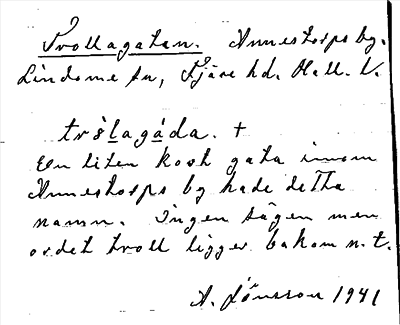 Trollagatan. Annestorps by.
Lindome sn, Fjäre hd. Hall. l.
tròlagàda. +
En liten kort gata inom
Annestorps by hade detta
namn. Ingen sägen men
ordet troll ligger bakom n.t.
A. Jönsson 1941